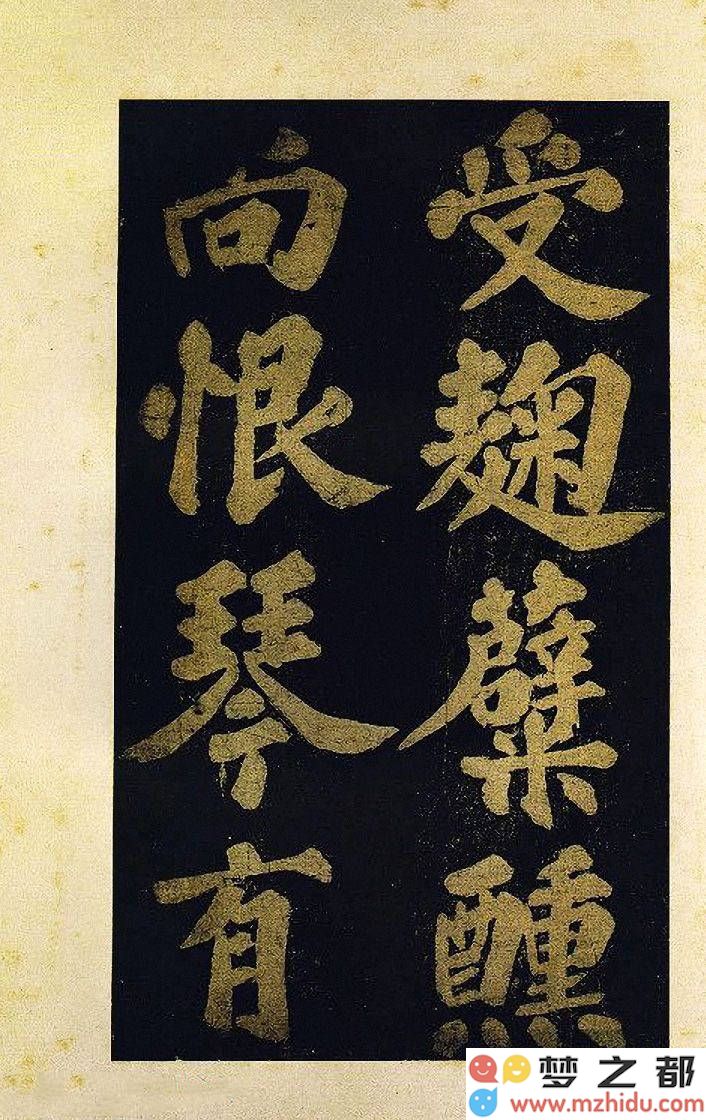 受麴糵醺
向恨琴有
梦之都
www.mzhidu.com